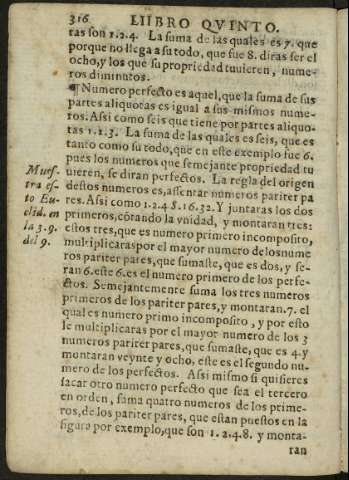 316 LIIBRO QVINTO.
tas son 1.2.4. La suma de las quales es 7. que
porque no llega a su todo, que fue 8. diras ser el
ocho, y los que su propriedad tuuieren, nume-
ros diminutos.
¶Numero perfecto es aquel, que la suma de sus
partes aliquotas es igual a sus mismos nume-
ros. Assi como seis que tiene por partes aliquo-
tas 1.2.3. La suma de las quales es seis, que es
tanto como su todo, que en este exemplo fue 6.
pues los numeros que semejante propriedad tu
uieren, se diran perfectos. La regla del origen
destos numeros es, assentar numeros pariter pa
res. Assi como 1.2.4 8.16.32. Y juntaras los dos
primeros, cōtando la vnidad, y montaran tres:
estos tres, que es numero primero incomposito,
multiplicaras por el mayor numero de los nume
ros pariter pares, que sumaste, que es dos, y se-
ran 6. este 6. es el numero primero de los perfe-
ctos. Semejantemente suma los tres numeros
primeros de los pariter pares, y montaran. 7. el
qual es numero primo incomposito, y por esto
le multiplicaras por el mayor numero de los 3
numeros pariter pares, que sumaste, que es 4. y
montaran veynte y ocho, este es el segundo nu-
mero de los perfectos. Assi mismo si quisieres
sacar otro numero perfecto que sea el tercero
en orden, suma quatro numeros de los prime-
ros, de los pariter pares, que estan puestos en la
figura por exemplo, que son 1.2.4.8. y monta-
ran
Mues-
tra es-
to Eu-
clid. en
la 3.9.
del 9.